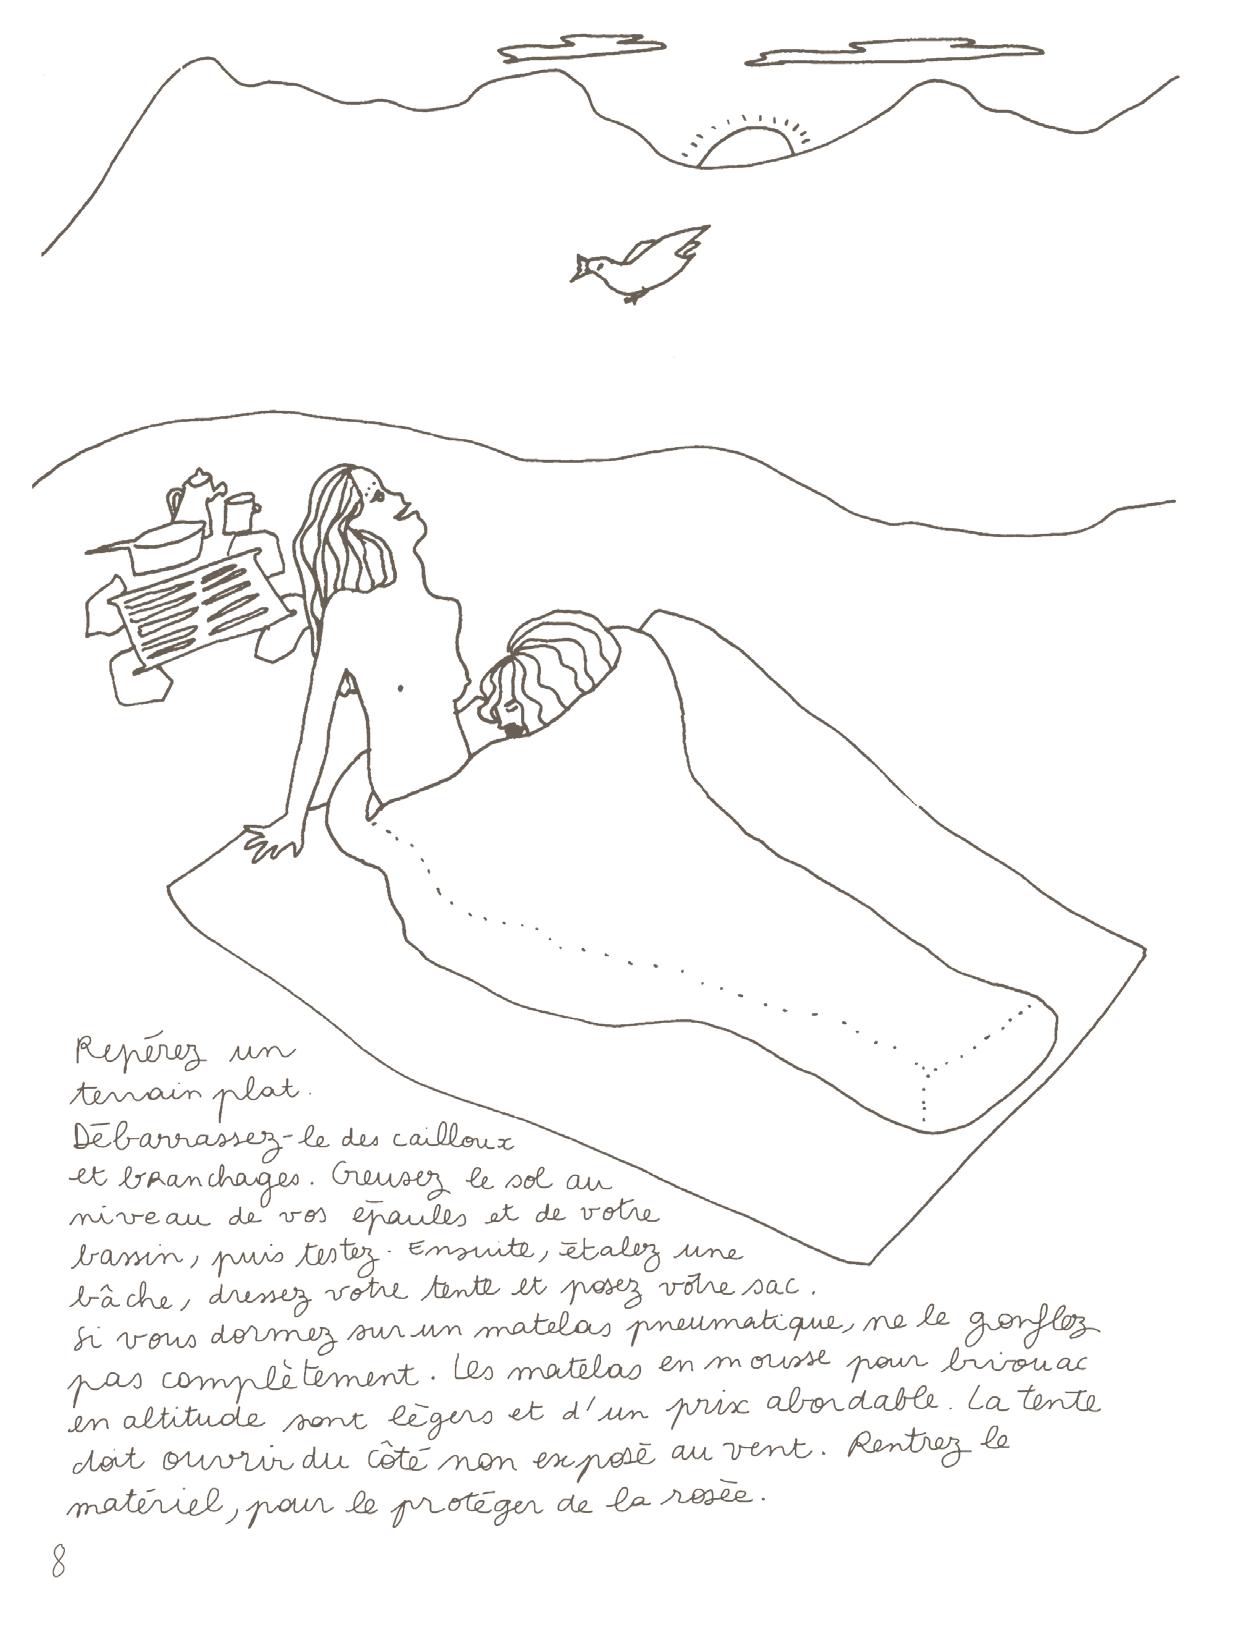 Repérez un
terrain plat.
Débarrassez-le des cailloux
et branchages. Creusez le sol au
niveau de vos épaules et de votre
bassin, puis testez. Ensuite, étalez une
bâche, dressez votre tente et posez votre sac.
Si vous dormez sur un matelas pneumatique, ne le gonflez
pas complètement. Les matelas en mousse pour bivouac
en altitude sont légers et d'un prix abordable. La tente
doit ouvrir du côté non exposé au vent. Rentrez le
matériel, pour le protéger de la rosée.
8